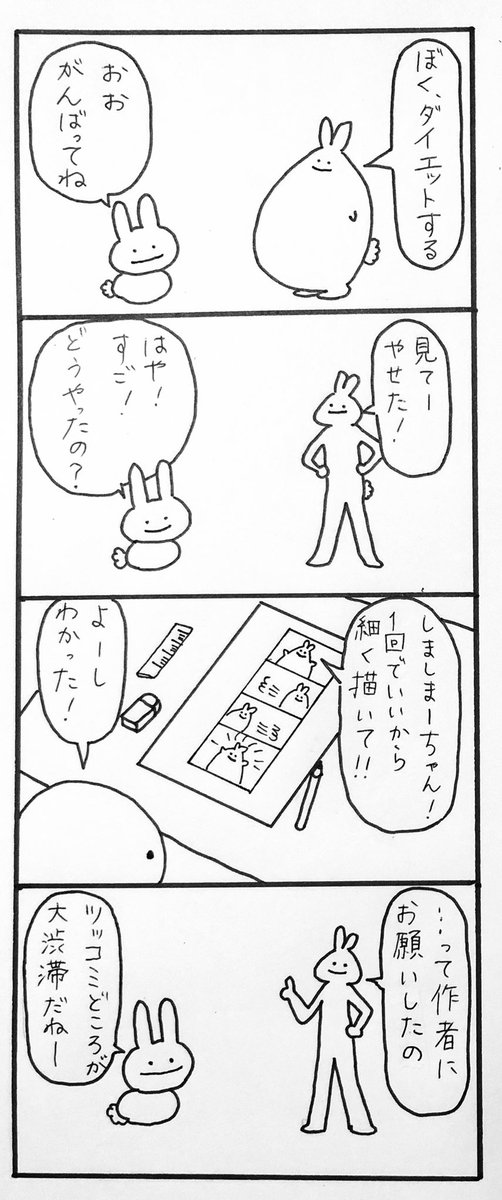 ぼく、ダイエットする
おお
がんばってね
見てー
やせた!
はや!
すご!
どうやったの?
しましまーちゃん!
1回でいいから
細く描いて!!
よーし
わかった!
…って作者に
お願いしたの
ツッコミどころが
大渋滞だねー